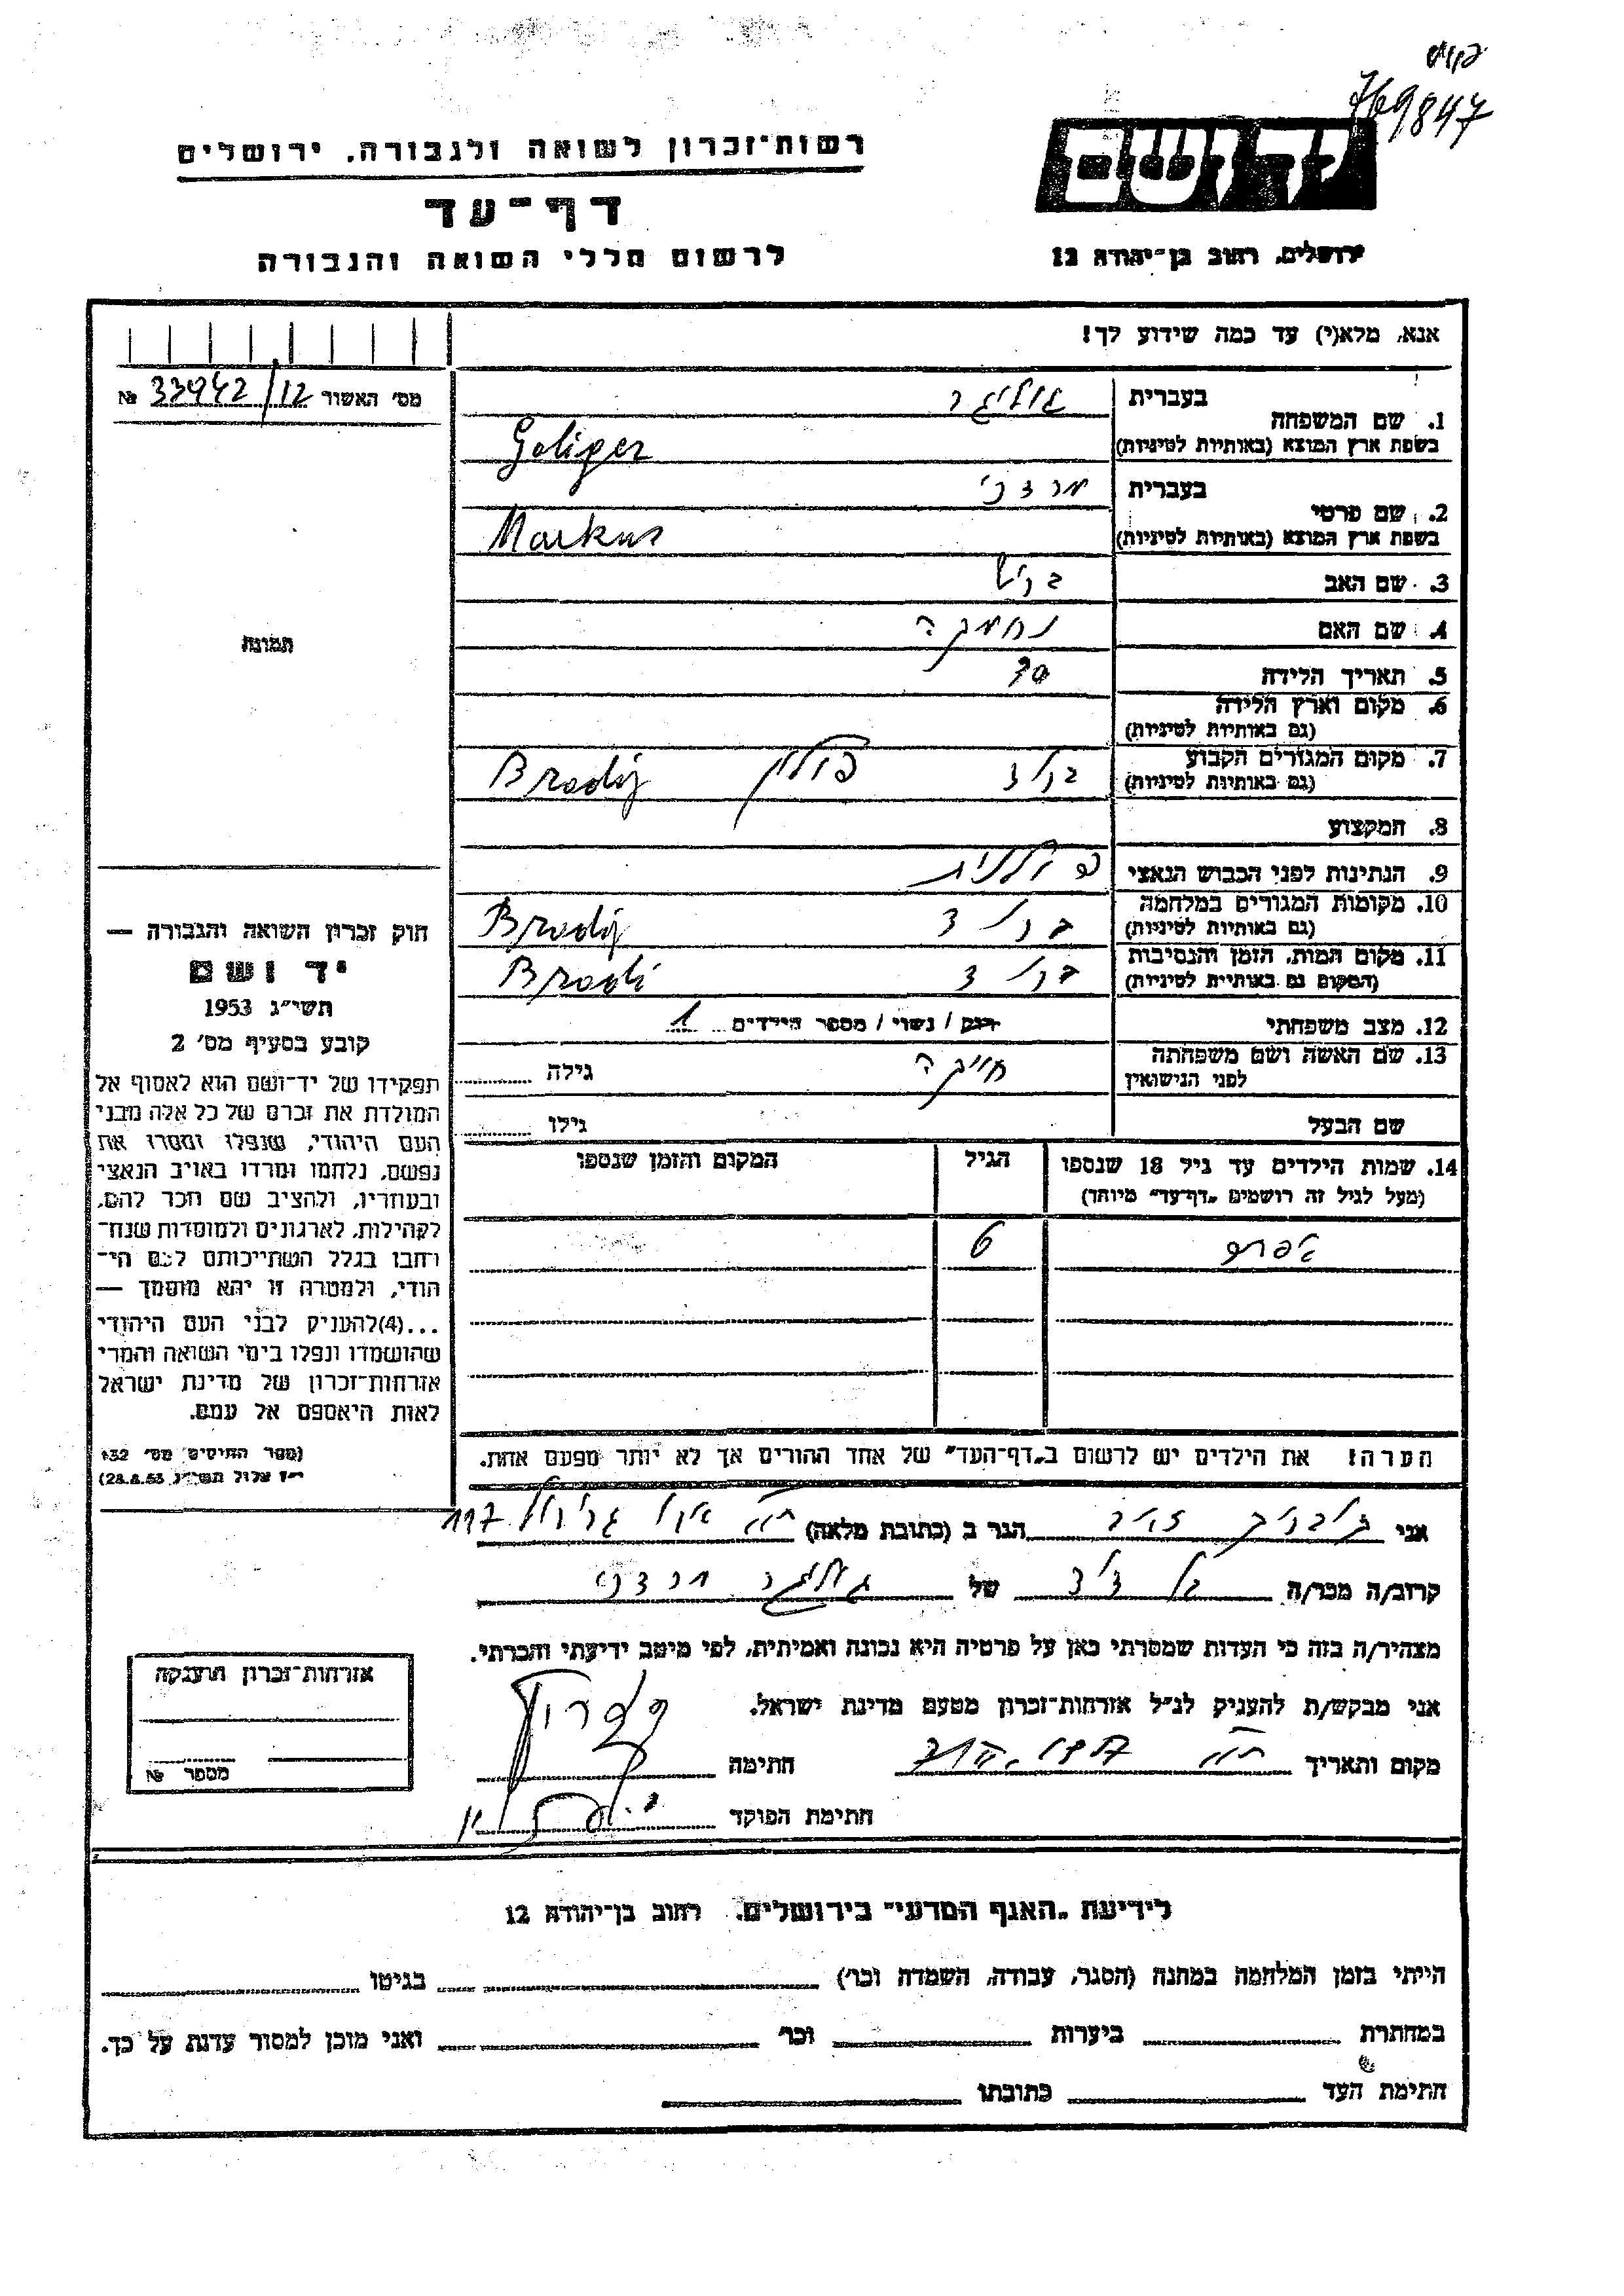 769847
רשות־זכרון לשואה ולגבורה, ירושלים
דף־עד
לרשום חללי השואה והגבורה
יד ושם
ירושלים, רחוב בן־יהודה 12
אנא, מלא(י) עד כמה שידוע לך!
מס' האשור 33942/12 №
1. שם המשפחה
בעברית גוליגר
בשפת ארץ המוצא (באותיות לטיניות) Goliger
2. שם פרטי
בעברית מרדכי
בשפת ארץ המוצא (באותיות לטיניות) Markus
3. שם האב
4. שם האם נחמקה
5. תאריך הלידה 30
6. מקום וארץ הלידה
(גם באותיות לטיניות)
7. מקום המגורים הקבוע
(גם באותיות לטיניות) ברודי פולין Brodij
8. המקצוע
9. הנתינות לפני הכבוש הנאצי פולנית
10. מקומות המגורים במלחמה
(גם באותיות לטיניות) Brodij
11. מקום המות, הזמן והנסיבות
(המקום גם באותיות לטיניות) Brodi
12. מצב משפחתי רווק / נשוי / מספר הילדים 1
13. שם האשה ושם משפחתה
לפני הנישואין חייקה גילה
שם הבעל גילו
14. שמות הילדים עד גיל 18 שנספו
(מעל לגיל זה רושמים „דף־עד" מיוחד)
הגיל
המקום והזמן שנספו
6
הערה! את הילדים יש לרשום ב„דף־העד" של אחד ההורים אך לא יותר מפעם אחת.
תמונת
חוק זכרון השואה והגבורה —
יד ושם
תשי״ג 1953
קובע בסעיף מס' 2
תפקידו של יד־ושם הוא לאסוף אל
המולדת את זכרם של כל אלה מבני
העם היהודי, שנפלו ומסרו את
נפשם, נלחמו ומרדו באויב הנאצי
ובעוזריו, ולהציב שם וזכר להם,
לקהילות, לארגונים ולמוסדות שנח־
רבו בגלל השתייכותם לעם הי־
הודי, ולמטרה זו יהא מוסמך —
...(4)להעניק לבני העם היהודי
שהושמדו ונפלו בימי השואה והמרי
אזרחות־זכרון של מדינת ישראל
לאות היאספם אל עמם.
(ספר החוקים מס' 132
י״ז אלול תשי״ג 28.8.53)
אני הגר ב (כתובת מלאה) 117
קרוב/ה מכר/ה של גוליגר מרדכי
מצהיר/ה בזה כי העדות שמסרתי כאן על פרטיה היא נכונה ואמיתית, לפי מיטב ידיעתי והכרתי.
אני מבקש/ת להעניק לנ״ל אזרחות־זכרון מטעם מדינת ישראל.
מקום ותאריך חתימה
חתימת הפוקד
אזרחות־זכרון הוענקה
מספר №
לידיעת „האגף המדעי" בירושלים, רחוב בן־יהודה 12
הייתי בזמן המלחמה במחנה (הסגר, עבודה, השמדה וכו') בגיטו
במחתרת ביערות וכו' ואני מוכן למסור עדות על כך.
חתימת העד כתובתו